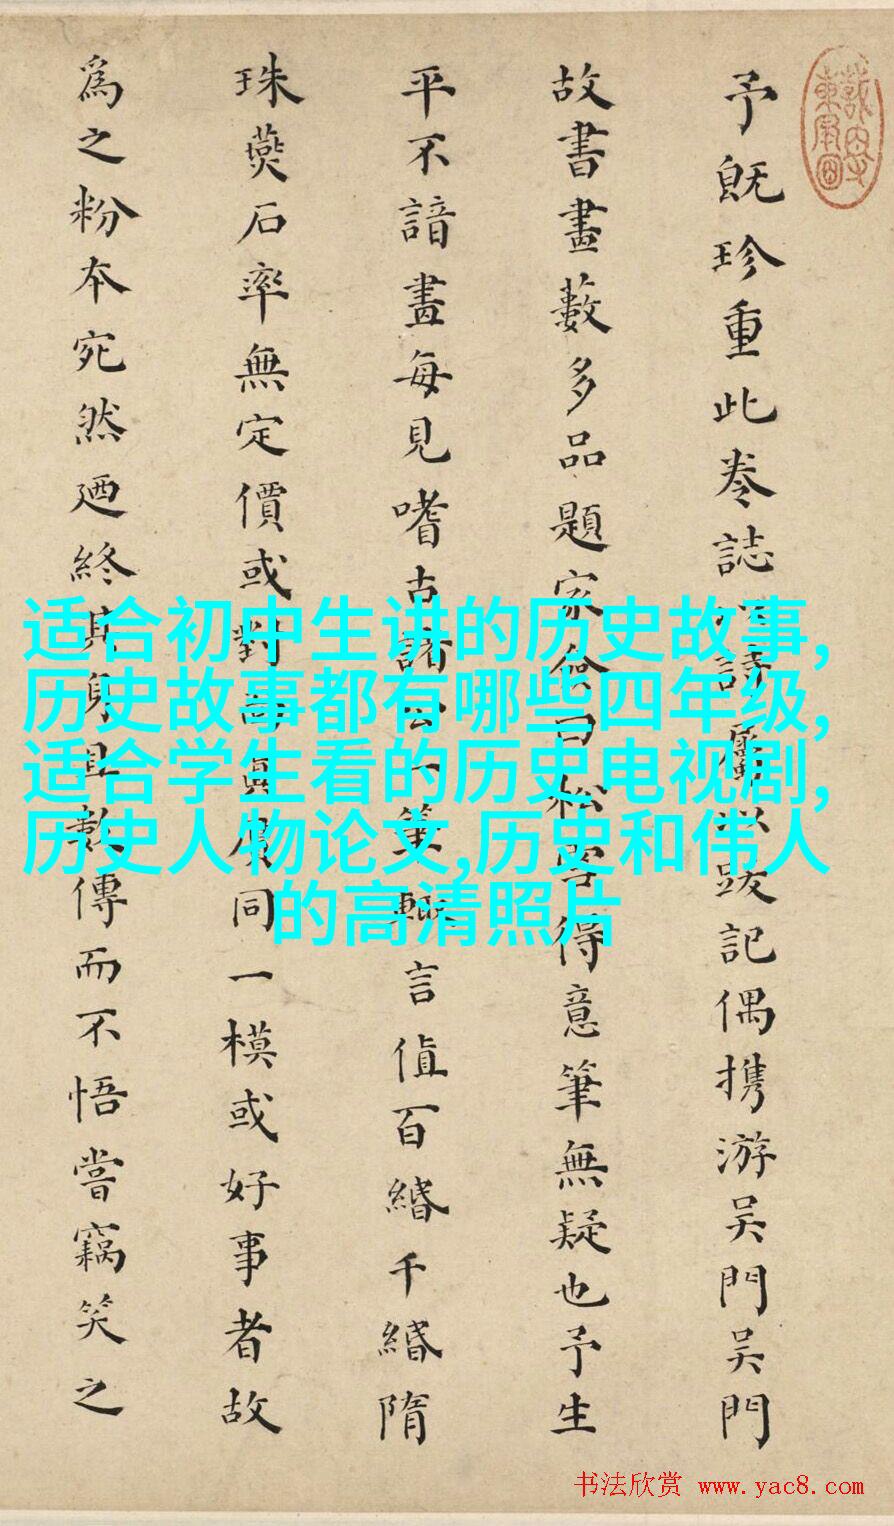 予既珍重此卷誌詩屬以跋記偶携游吴門吴門
故書畫藪多品題家僉曰松得意筆無疑也予生
平不諳畫每見嗜古諸公一筆輒言值百緡千緡隋
珠燕石率無定價或對真贋同一模或好事者故
爲之粉本宛然廼終其身且數傳而不悟嘗竊笑之
适合初中生讲的历史故事,
历史故事都有哪些四年级,
适合学生看的历史电视剧,
历史人物论文,历史和伟人
的高清照片
书法欣赏 www.yac8.com